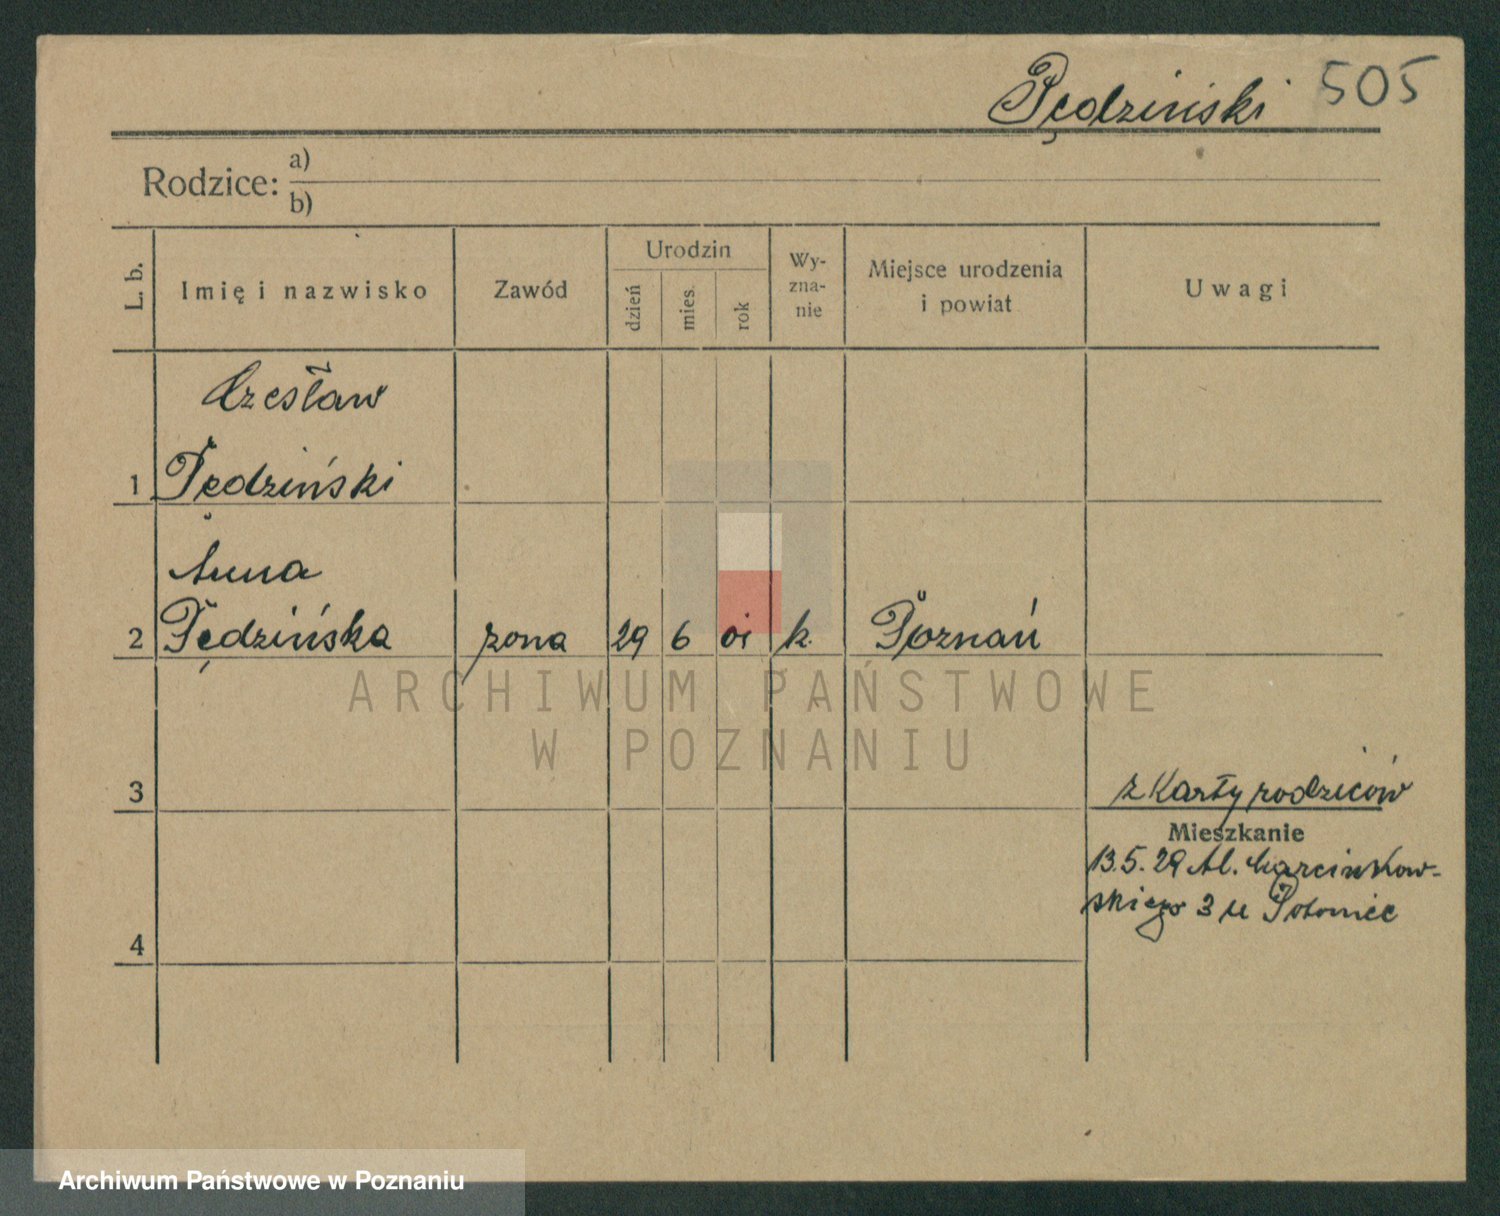 Pędziński 505
Rodzice: a)
b)
L. b.
Imię i nazwisko
Zawód
Urodzin
dzień
mies.
rok
Wy-
zna-
nie
Miejsce urodzenia
i powiat
Uwagi
Czesław
1 Pędziński
Anna
2 Pędzińska żona 29 6 01 k. Poznań
ARCHIWUM PAŃSTWOWE
W POZNANIU
3
z Karty rodziców
Mieszkanie
13.5.29 Al. Marcinkow-
skiego 3 u
4
Archiwum Państwowe w Poznaniu